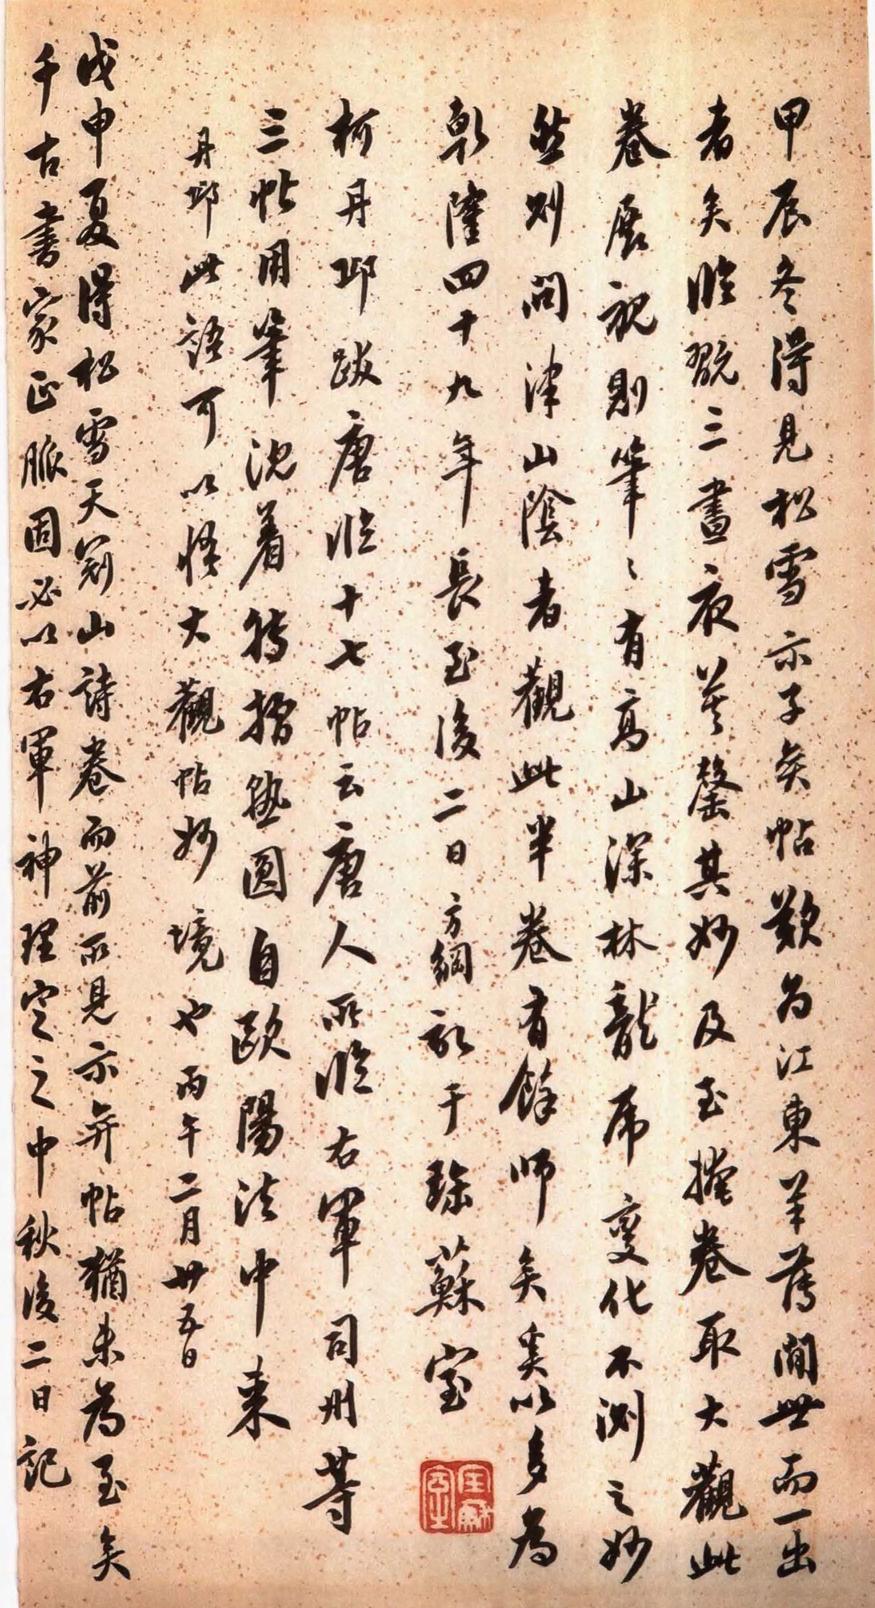 甲辰冬得見松雪臨子矣帖歎為江東羊薄閒世而一出
者矣臨翫三晝夜莫罄其妙及至掩卷取大觀此
卷展視則筆筆有高山深林龍虎變化不測之妙
然則問津山陰者觀此半卷有餘師矣奚以多為
乾隆四十九年長至後二日方綱記于蘇室
柯丹邱跋唐臨十七帖云唐人所臨右軍司州等
三帖用筆沈着轉摺熟圓自歐陽法中来
丹邱此語可以悟大觀帖妙境也丙午二月廿五日
戊申夏得松雪天冠山詩卷而前所見帖猶未為至矣
千古書家正脈固必以右軍神理定之中秋後二日記